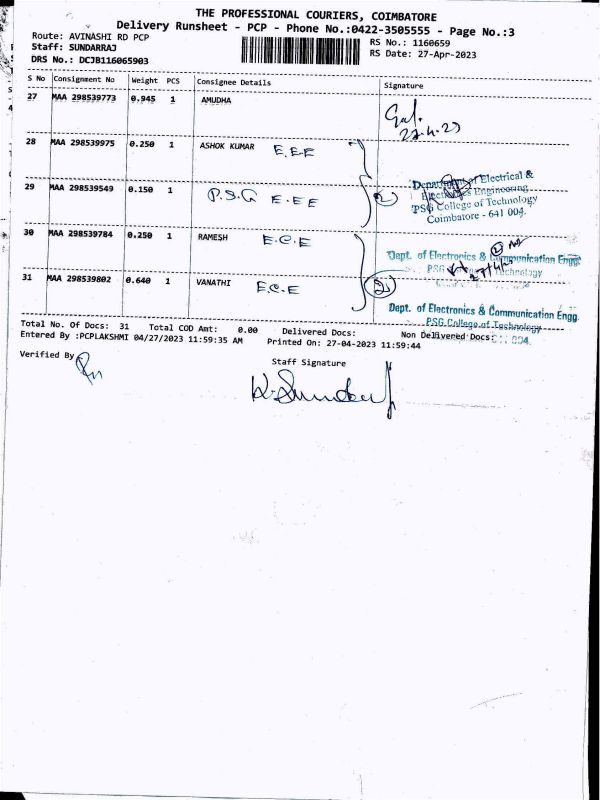 THE PROFESSIONAL COURIERS, COIMBATORE
Delivery Runsheet - PCP - Phone No.:0422-3505555 - Page No.:3
Route: AVINASHI RD PCP RS No.: 1160659
Staff: SUNDARRAJ RS Date: 27-Apr-2023
DRS No.: DCJB116065903
S No Consignment No Weight PCS Consignee Details Signature
27 MAA 298539773 0.945 1 AMUDHA
27.4.23
28 MAA 298539975 0.250 1 ASHOK KUMAR E.E.E
Department of Electrical &
29 MAA 298539549 0.150 1 P.S.G E.EE 2
Electronics Engineering
PSG College of Technology
Coimbatore - 641 004.
30 MAA 298539784 0.250 1 RAMESH E.C.E 2
Dept. of Electronics & Communication Engg.
PSG College of Technology
27/4/
31 MAA 298539802 0.640 1 VANATHI E.C.E 2
Dept. of Electronics & Communication Engg.
PSG College of Technology
004.
Total No. Of Docs: 31 Total COD Amt: 0.00 Delivered Docs: Non Delivered Docs:
Entered By :PCPLAKSHMI 04/27/2023 11:59:35 AM Printed On: 27-04-2023 11:59:44
Verified By Staff Signature
K. Sundarraj